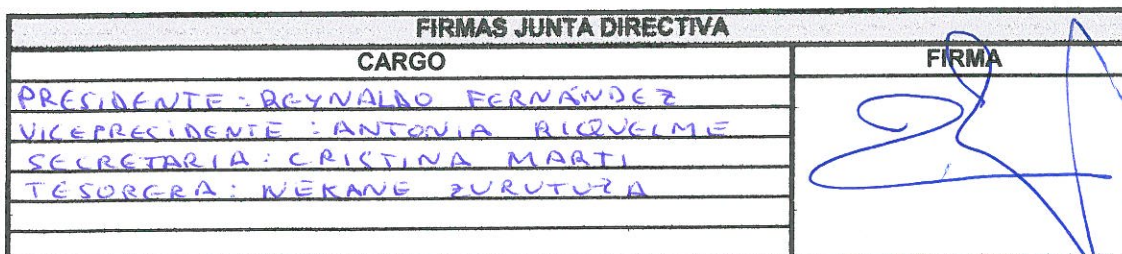 FIRMAS JUNTA DIRECTIVA
CARGO
FIRMA
PRESIDENTE: REYNALDO FERNÁNDEZ
VICEPRESIDENTE: ANTONIA RIQUELME
SECRETARIA: CRISTINA MARTI
TESORERA: NEKANE ZURUTUZA